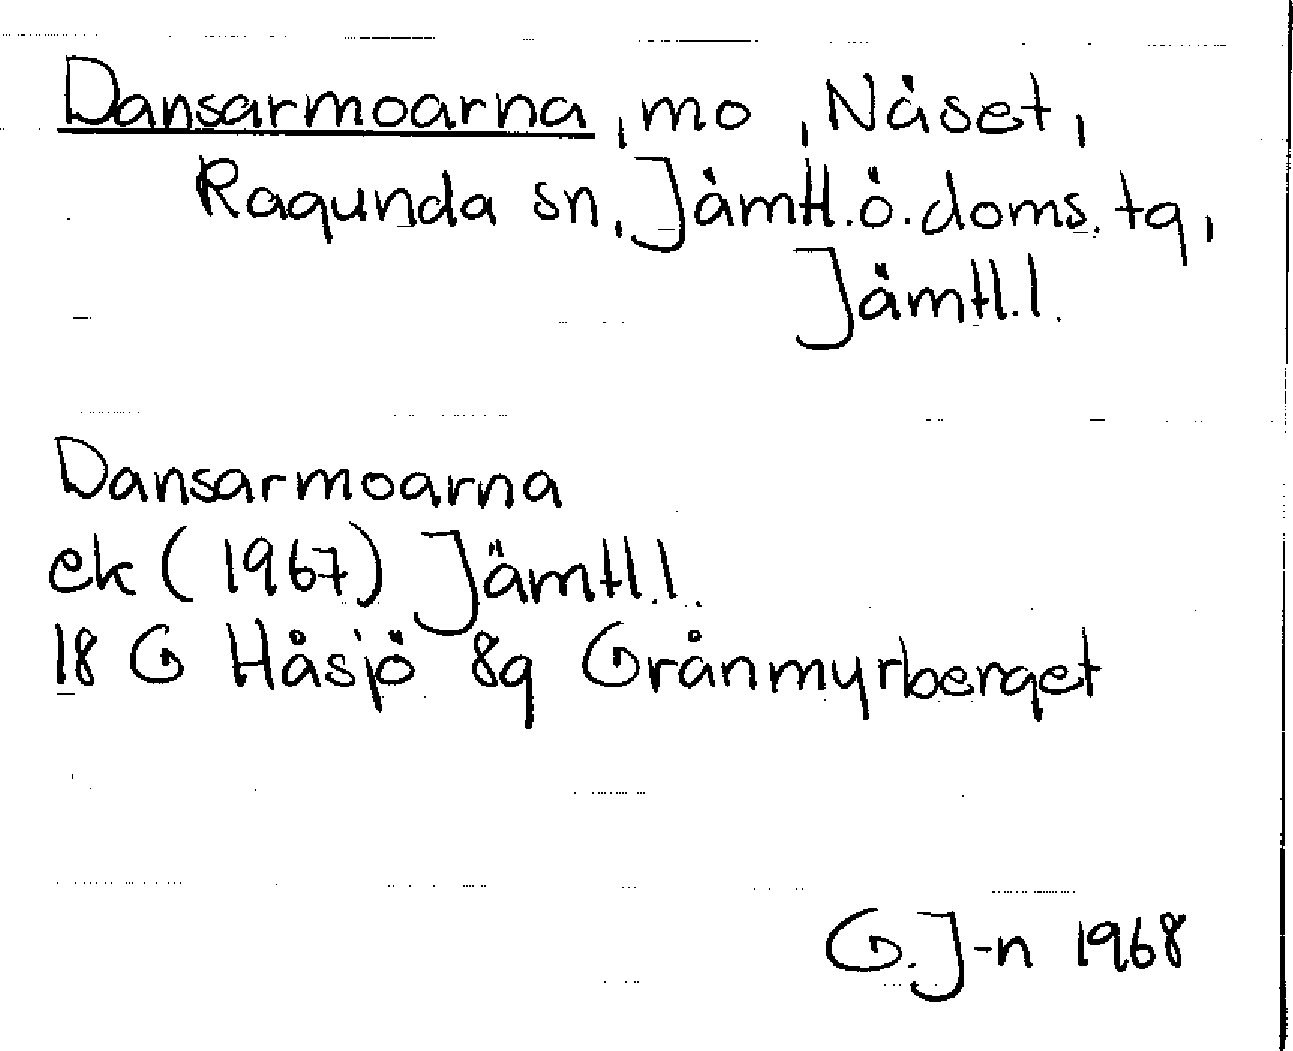 Dansarmoarna, mo, Näset,
Ragunda sn, Jämtl.ö.doms.tg,
Jämtl.l.
Dansarmoarna
ek (1967) Jämtl.l.
18 G Håsjö 8g Grånmyrberget
G.J-n 1968